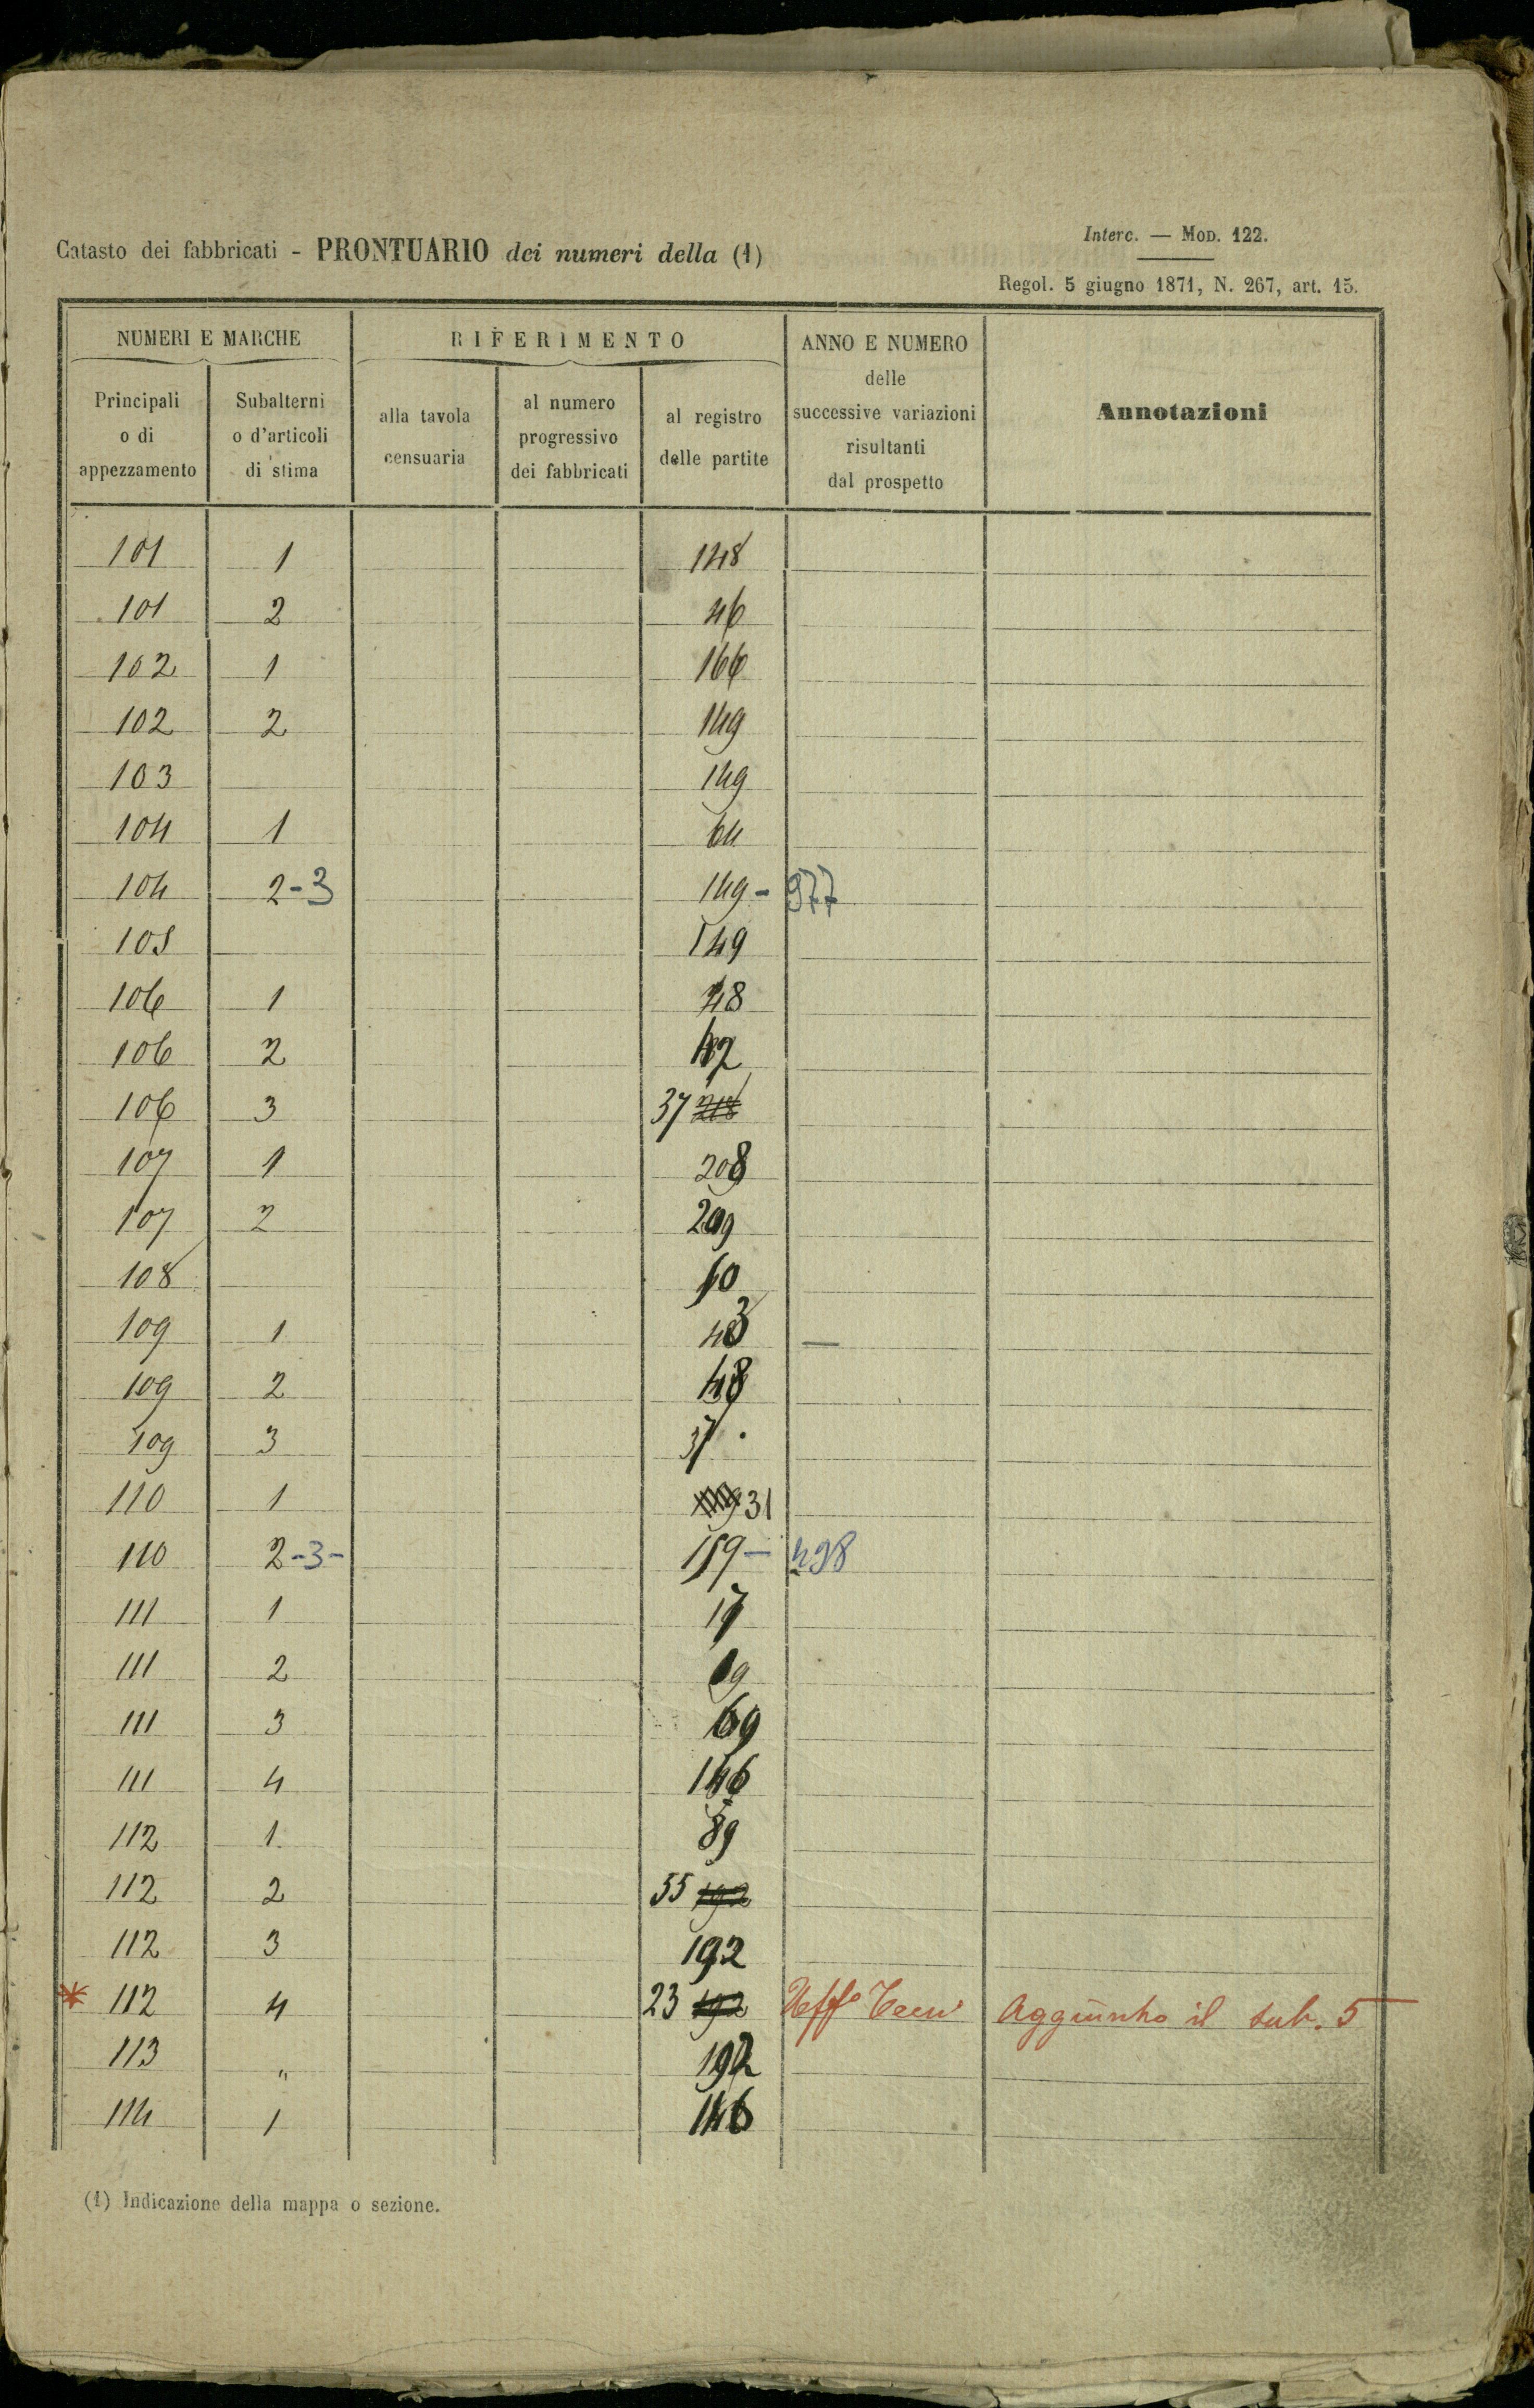 Catasto dei fabbricati - PRONTUARIO dei numeri della (1)
Interc. — Mod. 122.
Regol. 5 giugno 1871, N. 267, art. 15.
NUMERI E MARCHE
RIFERIMENTO
ANNO E NUMERO
delle
successive variazioni
risultanti
dal prospetto
Annotazioni
Principali
o di
appezzamento
Subalterni
o d'articoli
di stima
alla tavola
censuaria
al numero
progressivo
dei fabbricati
al registro
delle partite
101 1 148
101 2 46
102 1 166
102 2 149
103 149
104 1 64
104 2-3 149- 977
105 149
106 1 48
106 2
106 3 37 218
107 1 208
107 2 209
108
109 1
109 2 48
109 3 37
110 1 31
110 2-3- 159- 498
111 1 17
111 2
111 3 69
111 4 146
112 1 89
112 2 55 192
112 3 192
* 112 4 23 192 Aggiunto il sub. 5
113 " 192
114 1 146
(1) Indicazione della mappa o sezione.